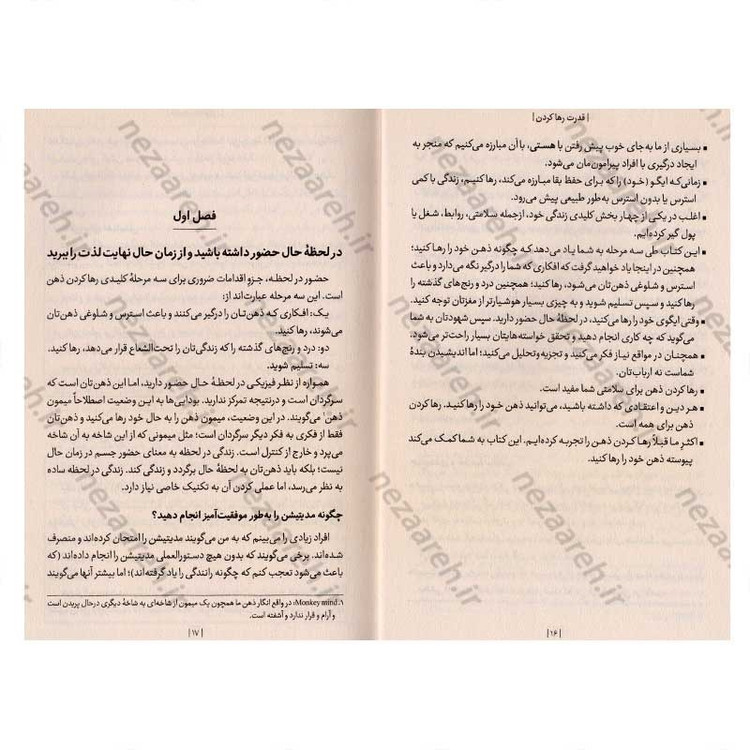 | قدرت رها کردن |
▪ بسیاری از ما به‌جای خوب پیش رفتن با هستی، با آن مبارزه می‌کنیم که منجر به
ایجاد درگیری با افراد پیرامون‌مان می‌شود.
▪ زمانی‌که ایگو (خود) را که برای حفظ بقا مبارزه می‌کند، رها کنیم، زندگی با کمی
استرس یا بدون استرس به‌طور طبیعی پیش می‌رود.
▪ اغلب در یکی از چهار بخش کلیدی زندگی خود، ازجمله سلامتی، روابط، شغل یا
پول گیر کرده‌ایم.
▪ این کتاب طی سه مرحله به شما یاد می‌دهد که چگونه ذهن خود را رها کنید؛
همچنین در اینجا یاد خواهید گرفت که افکاری که شما را درگیر نگه می‌دارد و باعث
استرس و شلوغی ذهن‌تان می‌شود، رها کنید؛ همچنین درد و رنج‌های گذشته را
رها کنید و سپس تسلیم شوید و به چیزی بسیار هوشیارتر از مغزتان توجه کنید.
▪ وقتی ایگوی خود را رها می‌کنید، در لحظهٔ حال حضور دارید. سپس شهودتان به شما
می‌گوید که چه کاری انجام دهید و تحقق خواسته‌هایتان بسیار راحت‌تر می‌شود.
▪ همچنان در مواقع نیاز فکر می‌کنید و تجزیه‌وتحلیل می‌کنید؛ اما اندیشیدن بندهٔ
شماست نه ارباب‌تان.
▪ رها کردن ذهن برای سلامتی شما مفید است.
▪ هر دین و اعتقادی که داشته باشید، می‌توانید ذهن خود را رها کنید. رها کردن
ذهن برای همه است.
▪ اکثر ما قبلاً رها کردن ذهن را تجربه کرده‌ایم. این کتاب به شما کمک می‌کند
پیوسته ذهن خود را رها کنید.
| ۱۶ |
فصل اول
در لحظهٔ حال حضور داشته باشید و از زمان حال نهایت لذت را ببرید
حضور در لحظه، جزو اقدامات ضروری برای سه مرحلهٔ کلیدی رها کردن ذهن
است. این سه مرحله عبارت‌اند از:
یک: افکاری که ذهن‌تان را درگیر می‌کنند و باعث استرس و شلوغی ذهن‌تان
می‌شوند، رها کنید.
دو: درد و رنج‌های گذشته را که زندگی‌تان را تحت‌الشعاع قرار می‌دهد، رها کنید.
سه: تسلیم شوید.
همواره از نظر فیزیکی در لحظهٔ حال حضور دارید، اما این ذهن‌تان است که
سرگردان است و درنتیجه تمرکز ندارید. بودایی‌ها به این وضعیت اصطلاحاً میمون
ذهن۱ می‌گویند. در این وضعیت، میمون ذهن را به حال خود رها می‌کنید و ذهن‌تان
فقط از فکری به فکر دیگر سرگردان است؛ مثل میمونی که از این شاخه به آن شاخه
می‌پرد و خارج از کنترل است. زندگی در لحظه به معنای حضور جسم در زمان حال
نیست؛ بلکه باید ذهن‌تان به لحظهٔ حال برگردد و زندگی کند. زندگی در لحظه ساده
به نظر می‌رسد، اما عملی کردن آن به تکنیک خاصی نیاز دارد.
چگونه مدیتیشن را به‌طور موفقیت‌آمیز انجام دهید؟
افراد زیادی را می‌بینم که به من می‌گویند مدیتیشن را امتحان کرده‌اند و منصرف
شده‌اند. برخی می‌گویند که بدون هیچ دستورالعملی مدیتیشن را انجام داده‌اند (که
باعث می‌شود تعجب کنم که چگونه رانندگی را یاد گرفته‌اند)؛ اما بیشتر آنها می‌گویند
۱. Monkey mind: در واقع انگار ذهن ما همچون یک میمون از شاخه‌ای به شاخهٔ دیگری درحال پریدن است
و آرام و قرار ندارد و آشفته است.
| ۱۷ |
nezaareh.ir
nezaareh.ir
nezaareh.ir
nezaareh.ir
nezaareh.ir
nezaareh.ir
nezaareh.ir